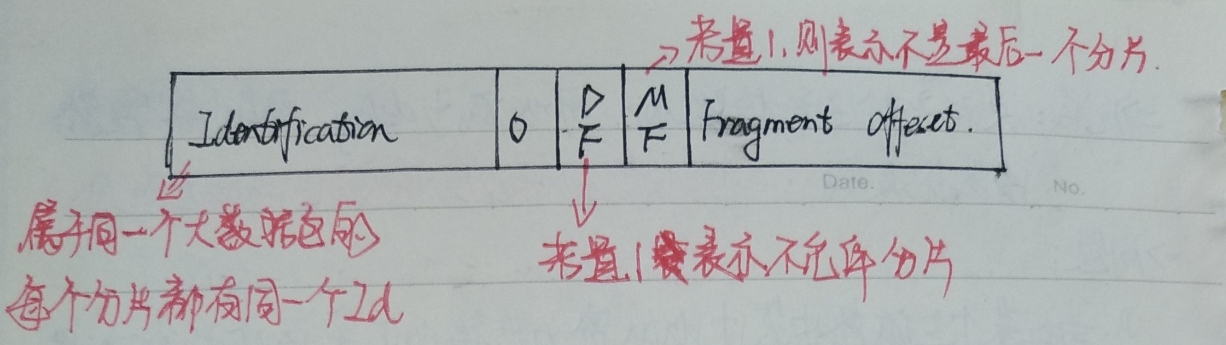 若置1,则表示不是最后一个分片.
Identification 0 DF MF Fragment offeset.
Date. No.
属于同一个大数据包的
每个分片都有同一个Id
若置1表示不允许分片